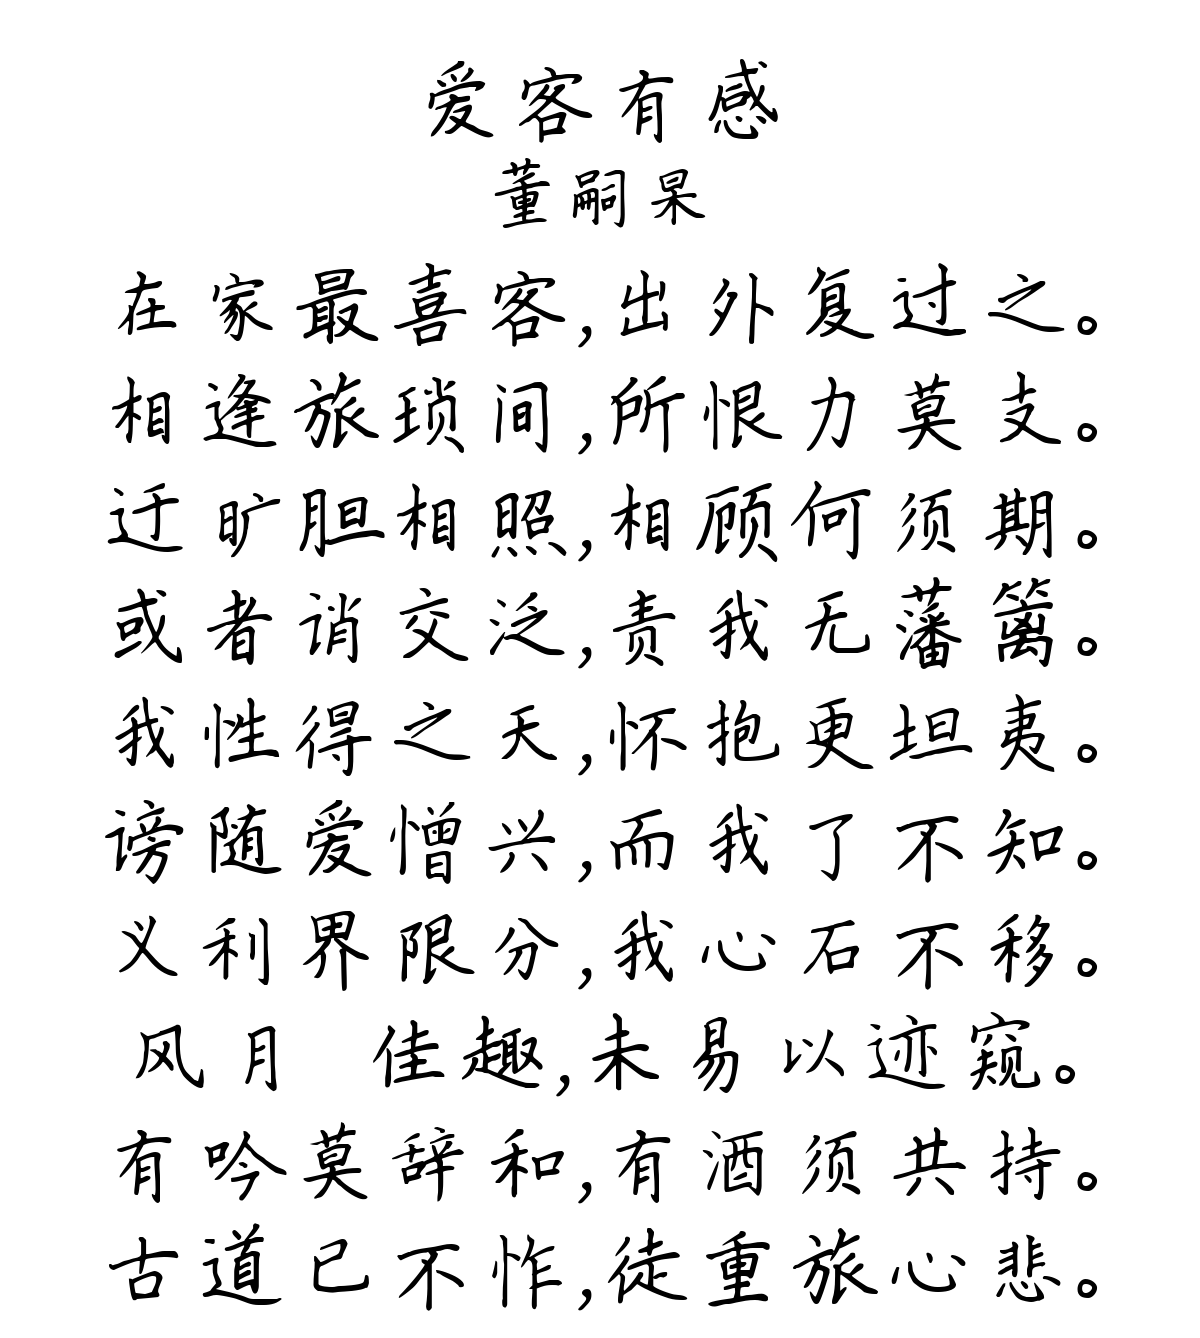 爱客有感
董嗣杲
在家最喜客,出外复过之。
相逢旅琐间,所恨力莫支。
迂旷胆相照,相顾何须期。
或者诮交泛,责我无藩篱。
我性得之天,怀抱更坦夷。
谤随爱憎兴,而我了不知。
义利界限分,我心石不移。
风月 佳趣,未易以迹窥。
有吟莫辞和,有酒须共持。
古道已不怍,徒重旅心悲。